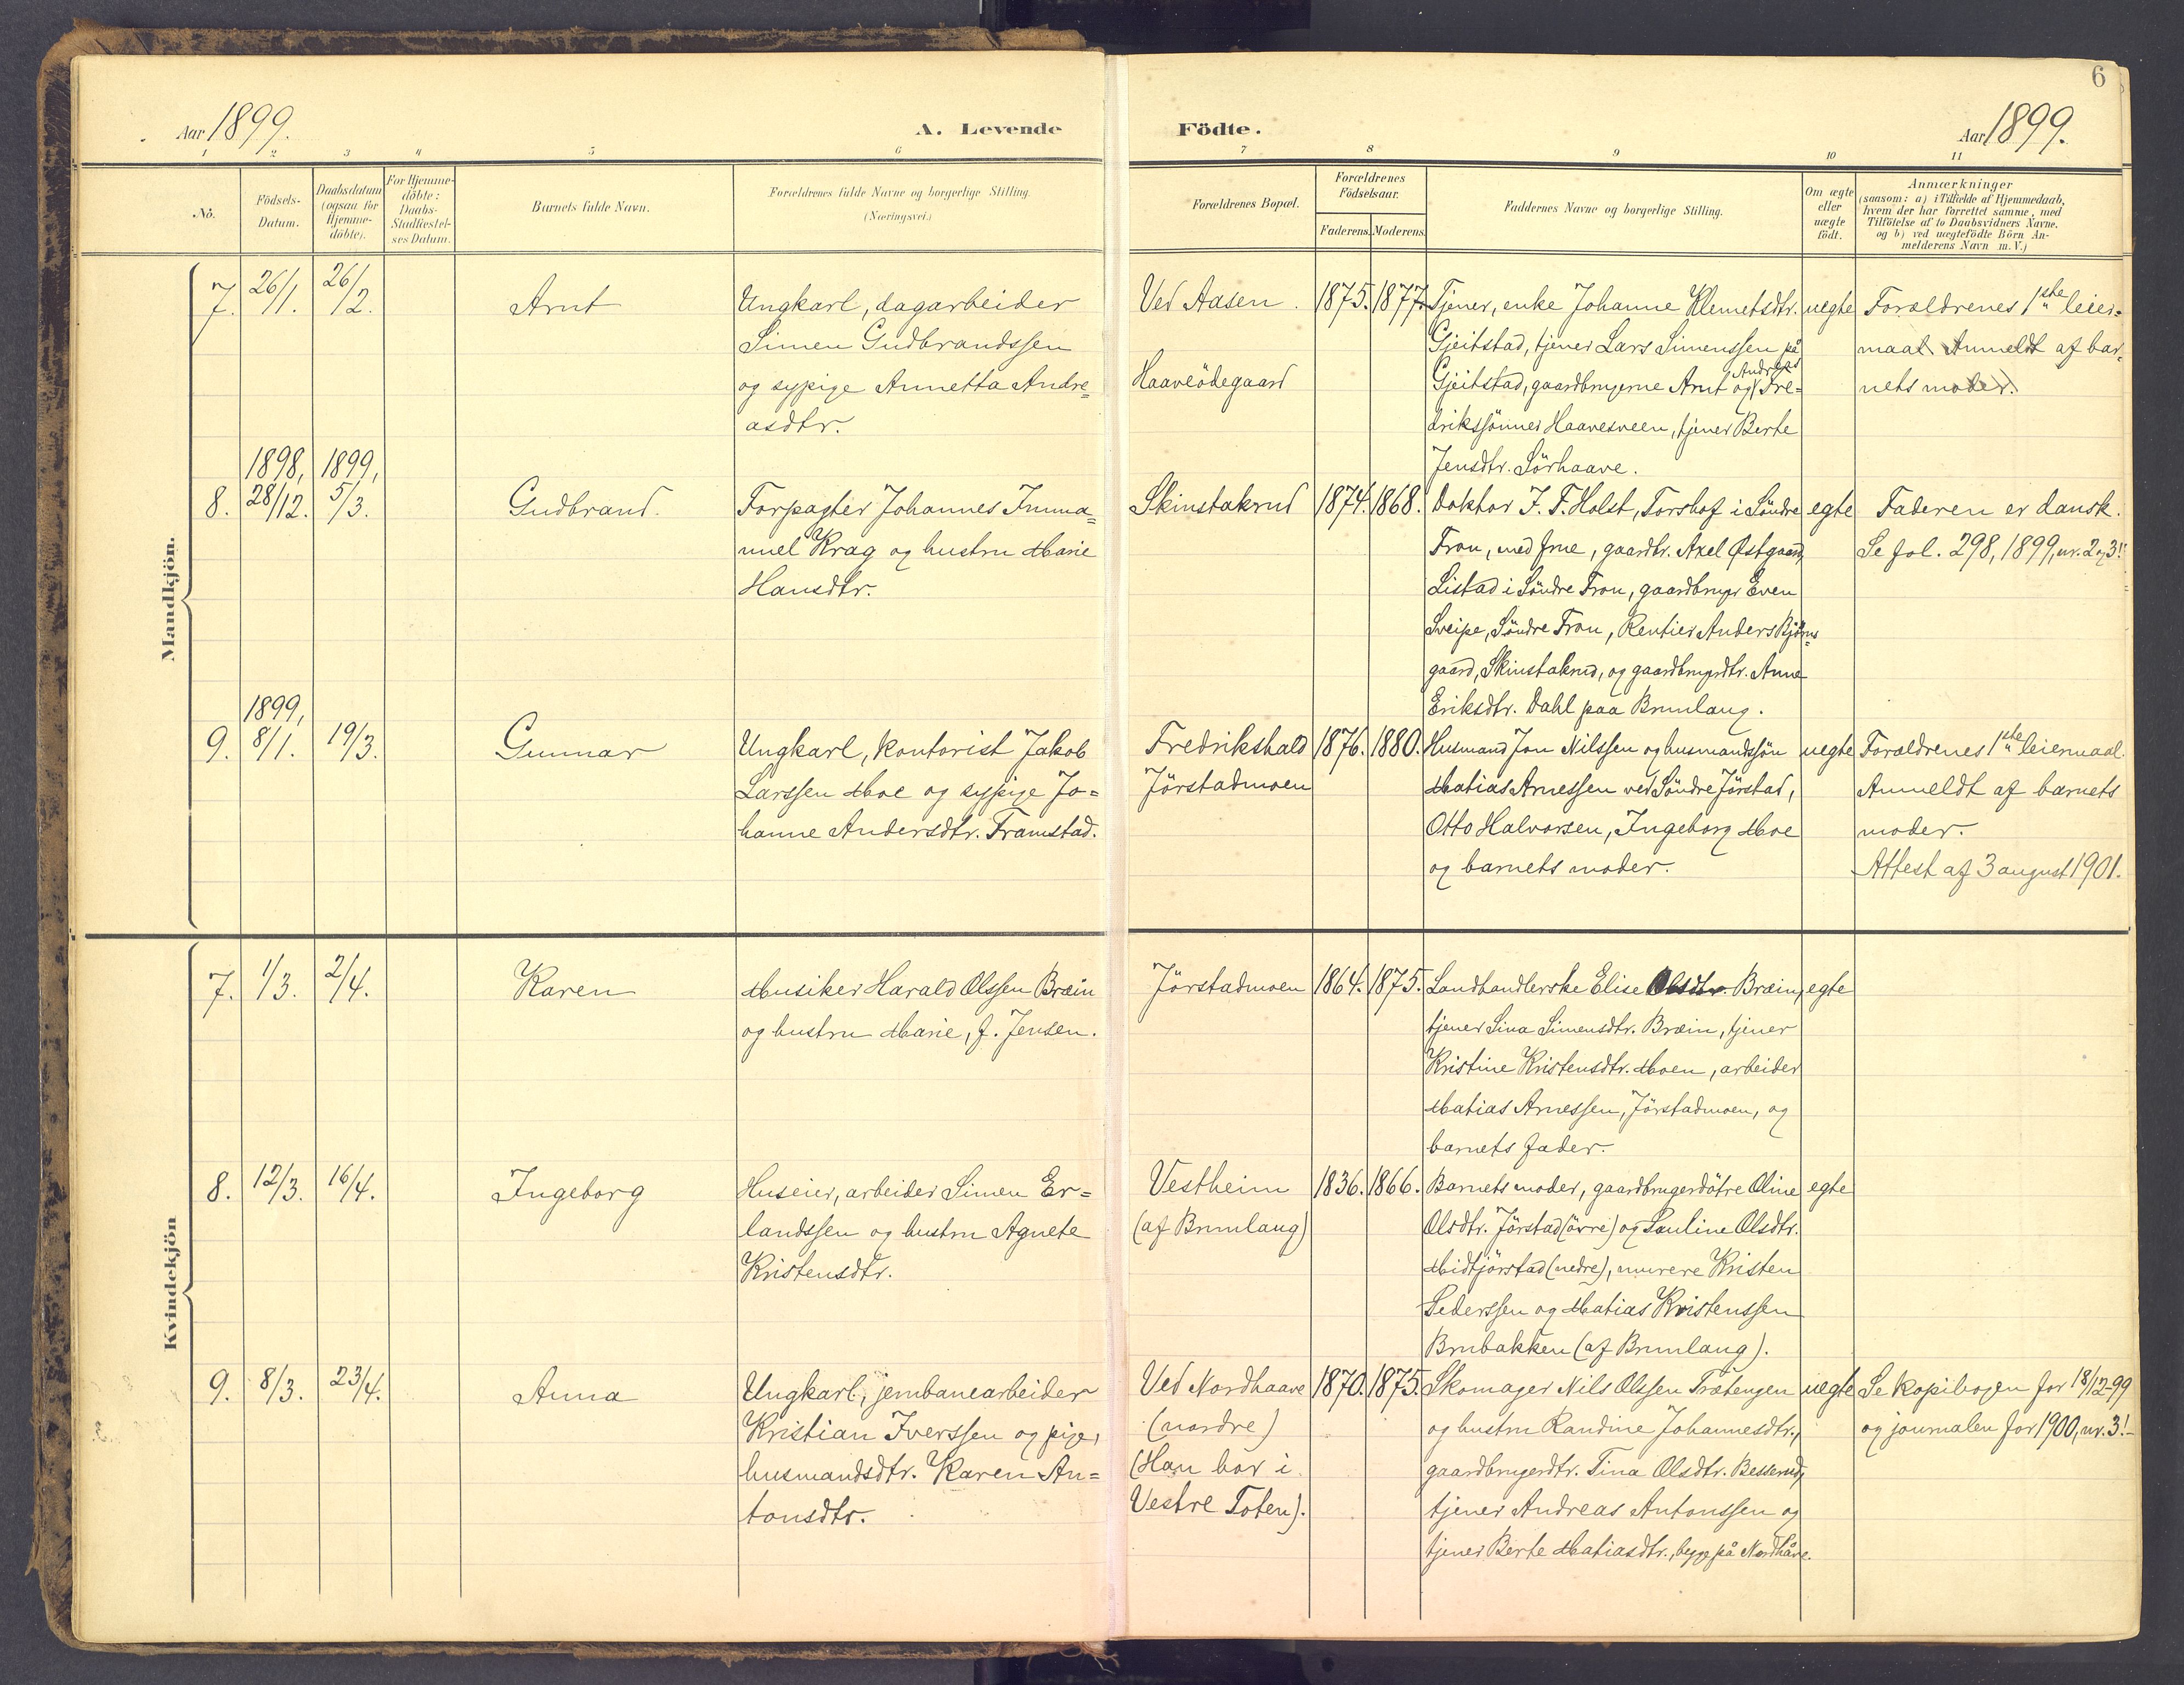 6
Aar 1899.
A. Levende
Födte.
Aar 1899.
1 2 3 4 5 6 7 8 9 10 11
No.
Födsels-
Datum.
Daabsdatum
(ogsaa for
Hjemme-
döbte).
For Hjemme-
döbte:
Daabs-
Stadfæstel-
ses Datum.
Barnets fulde Navn.
Forældrenes fulde Navne og borgerlige Stilling.
(Næringsvei.)
Forældrenes Bopæl.
Forældrenes
Födselsaar.
Faderens. Moderens.
Faddernes Navne og borgerlige Stilling.
Om ægte
eller
uægte
födt.
Anmærkninger
(saasom: a) i Tilfælde af Hjemmedaab,
hvem der har forrettet samme, med
Tilföielse af to Daabsvidners Navne.
og b) ved uægtefödte Börn An-
melderens Navn m. V.)
Mandkjön.
7. 26/1. 26/2. Arnt
Ungkarl, dagarbeider
Simen Gudbrandssen
og sypige Annetta Andre=
asdtr.
Ved Aasen.
Haaveödegaard
1875. 1877.
Tjener, enke Johanne Klemetsdtr.
Gjeitstad, tjener Lars Simenssen på
Gjeitstad, gaardbrugerne Arnt og Andreas Fre=
drikssönner Haavesveen, tjener Berte
Jensdtr. Sörhaave.
uegte
Forældrenes 1ste leier=
maal. Anmeldt af bar=
nets moder.
1898, 1899,
8. 28/12. 5/3. Gudbrand.
Forpagter Johannes Imma=
nuel Krag og hustru Marie
Hansdtr.
Skinstakrud
1874. 1868.
Doktor J. F. Holst, Forshof i Söndre
Fron, med frue, gaardbr. Axel Østgaard,
Listad i Söndre Fron, gaardbruger Even
Sveipe, Söndre Fron, Rentier Anders Björns=
gaard, Skinstakrud, og gaardbrugerdtr. Anne
Eriksdtr. Dahl paa Brunlaug.
egte
Faderen er dansk.
Se fol. 298, 1899, nr. 2 og 3!
1899,
9. 8/1. 19/3. Gunnar
Ungkarl, Kontorist Jakob
Larssen Moe og sypige Jo=
hanne Andersdtr. Framstad.
Fredrikshald
Jörstadmoen
1876. 1880.
Husmand Jon Nilssen og husmandssön
Matias Arnessen ved Söndre Jörstad,
Otto Halvorsen, Ingeborg Moe
og barnets moder.
uegte
Forældrenes 1ste leiermaal.
Anmeldt af barnets
moder.
Attest af 3 august 1901.
Kvindekjön
7. 1/3. 2/4. Karen
Musiker Harald Olssen Bræin
og hustru Marie, f. Jensen.
Jörstadmoen
1864. 1875.
Landhandlerske Elise Olsdtr. Bræin,
tjener Lina Simensdtr. Bræin, tjener
Kristine Kristensdtr. Moen, arbeider
Matias Arnessen, Jörstadmoen, og
barnets fader.
egte
8. 12/3. 16/4. Ingeborg
Huseier, arbeider Simen Er=
landssen og hustru Agnete
Kristensdtr.
Vestheim
(af Brunlaug)
1836. 1866.
Barnets moder, gaardbrugerdötre Oline
Olsdtr. Jörstad (övre) og Pauline Olsdtr.
Midtjörstad (nedre), murere Kristen
Pederssen og Matias Kristenssen
Brubakken (af Brunlaug).
egte
9. 8/3. 23/4. Anna
Ungkarl, jernbanearbeider
Kristian Iverssen og pige,
husmandsdtr. Karen An=
tonsdtr.
Ved Nordhaave
(nordre)
(Han bor i
Vestre Toten).
1870. 1875.
Skomager Nils Olssen Trætengen
og hustru Randine Johannesdtr.,
gaardbrugerdtr. Tina Olsdtr. Besserud,
tjener Andreas Antonssen og
tjener Berte Matiasdtr., begge på Nordhåve.
uegte
Se kopibogen for 18/12-99
og journalen for 1900, nr. 3!